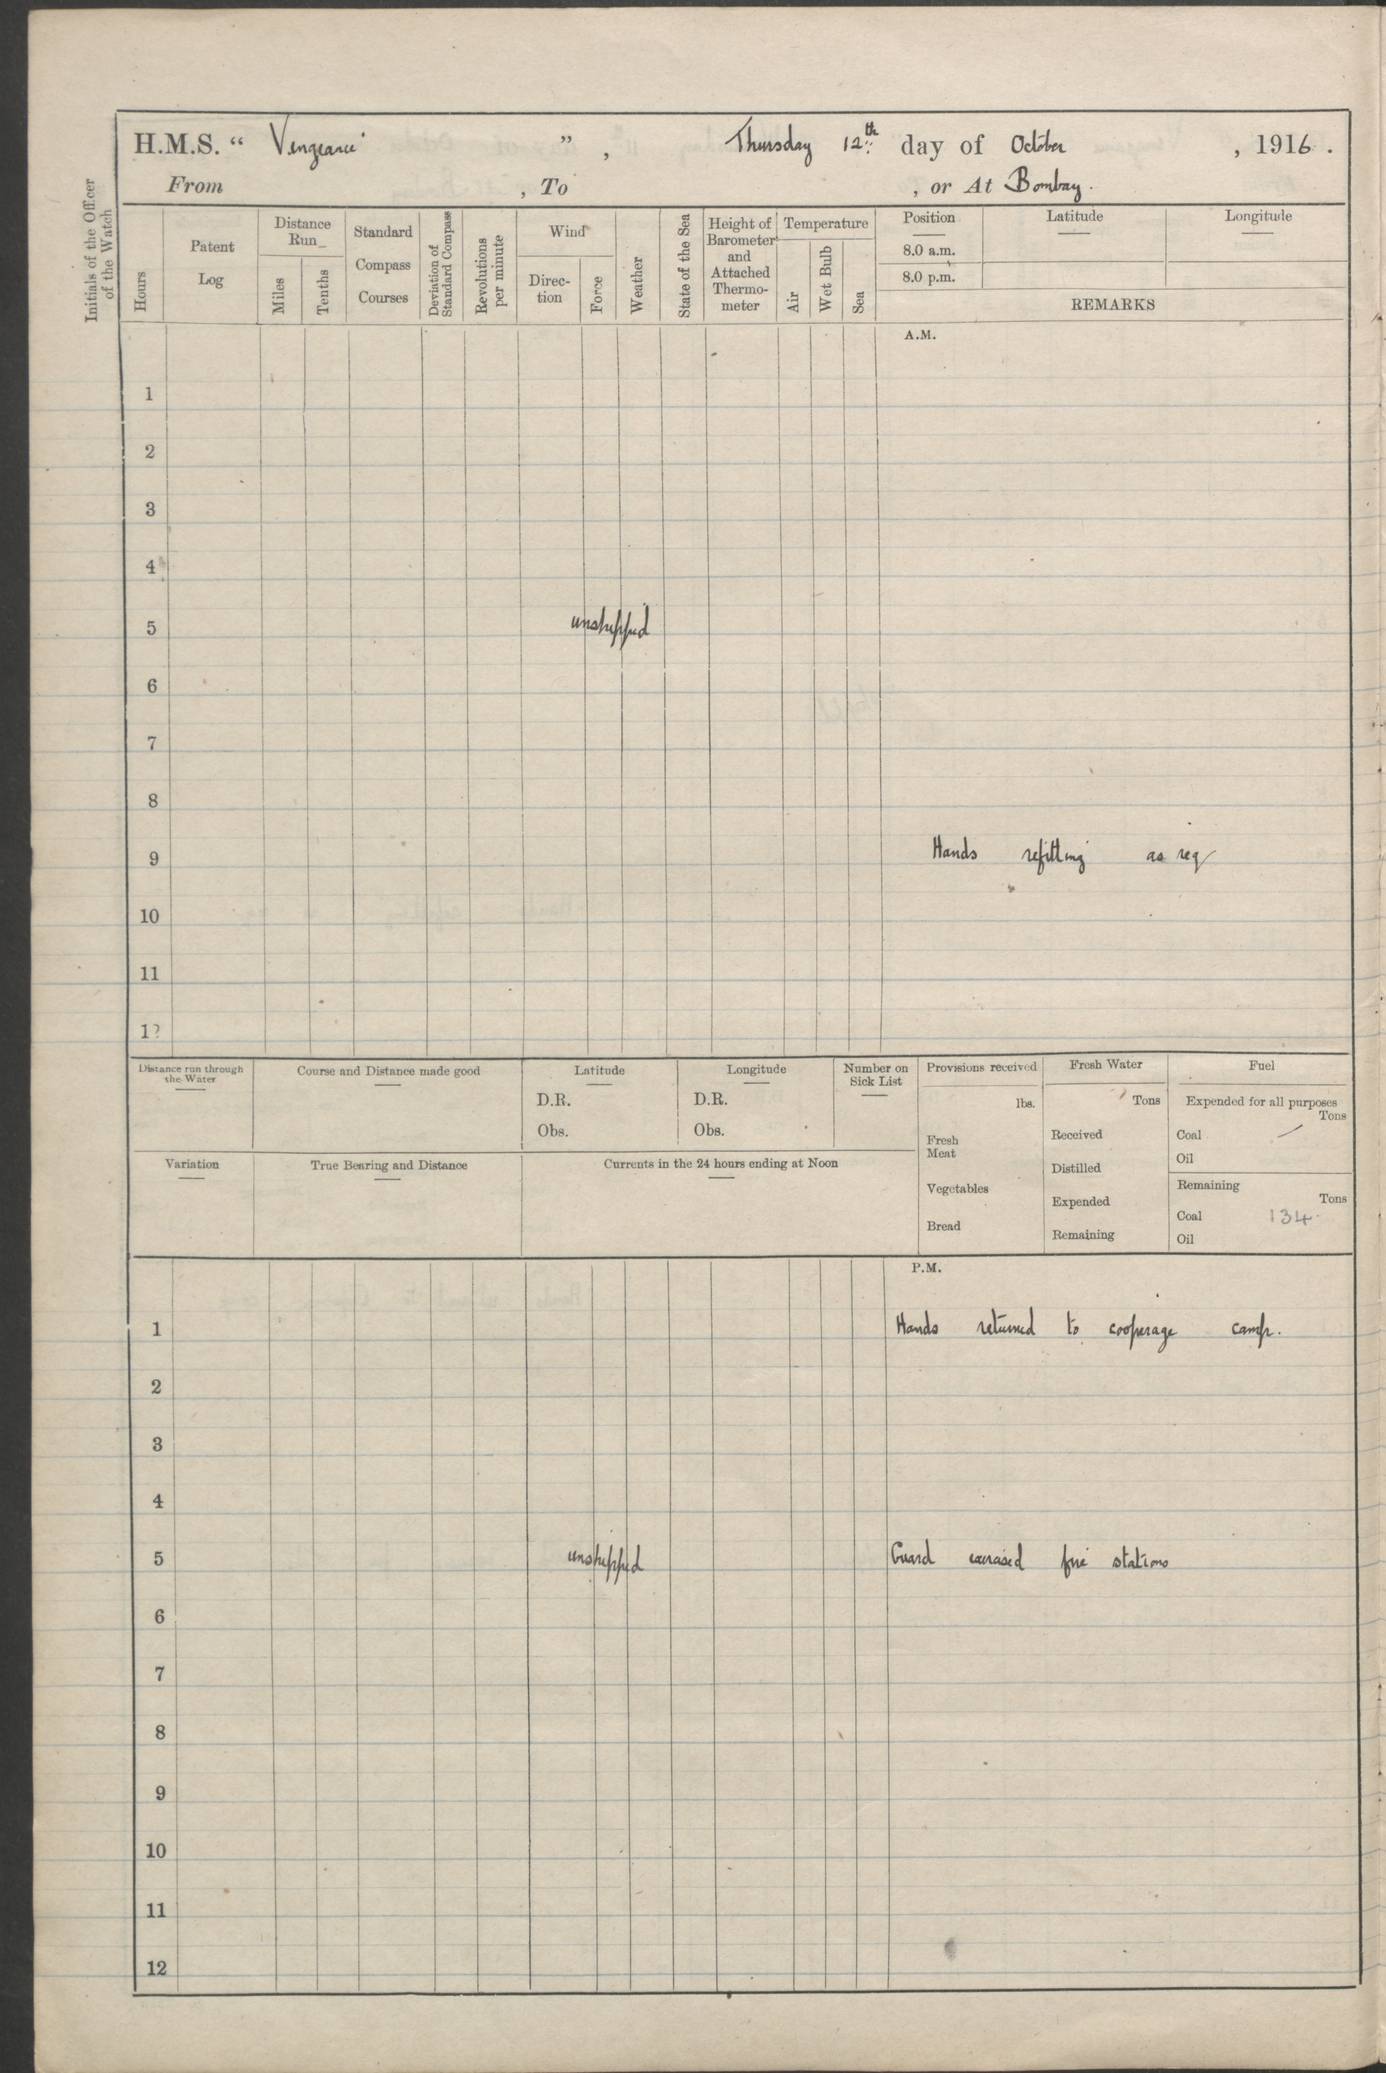 H.M.S. “ Vengeance ” , Thursday 12th day of October , 1916 .
From , To , or At Bombay.
Initials of the Officer of the Watch
Hours
Patent Log
Distance Run
Miles
Tenths
Standard Compass Courses
Deviation of Standard Compass
Revolutions per minute
Wind
Direc-tion
Force
Weather
State of the Sea
Height of Barometer and Attached Thermo-meter
Temperature
Air
Wet Bulb
Sea
Position Latitude Longitude
8.0 a.m.
8.0 p.m.
REMARKS
A.M.
1
2
3
4
5 unshipped
6
7
8
9 Hands refitting as req
10
11
12
Distance run through the Water
Course and Distance made good
Latitude
D.R.
Obs.
Longitude
D.R.
Obs.
Number on Sick List
Provisions received
lbs.
Fresh Meat
Vegetables
Bread
Fresh Water
Tons
Received
Distilled
Expended
Remaining
Fuel
Expended for all purposes
Tons
Coal —
Oil
Remaining
Tons
Coal 134
Oil
Variation
True Bearing and Distance
Currents in the 24 hours ending at Noon
P.M.
1 Hands returned to cooperage camp.
2
3
4
5 unshipped Guard exercised fire stations
6
7
8
9
10
11
12